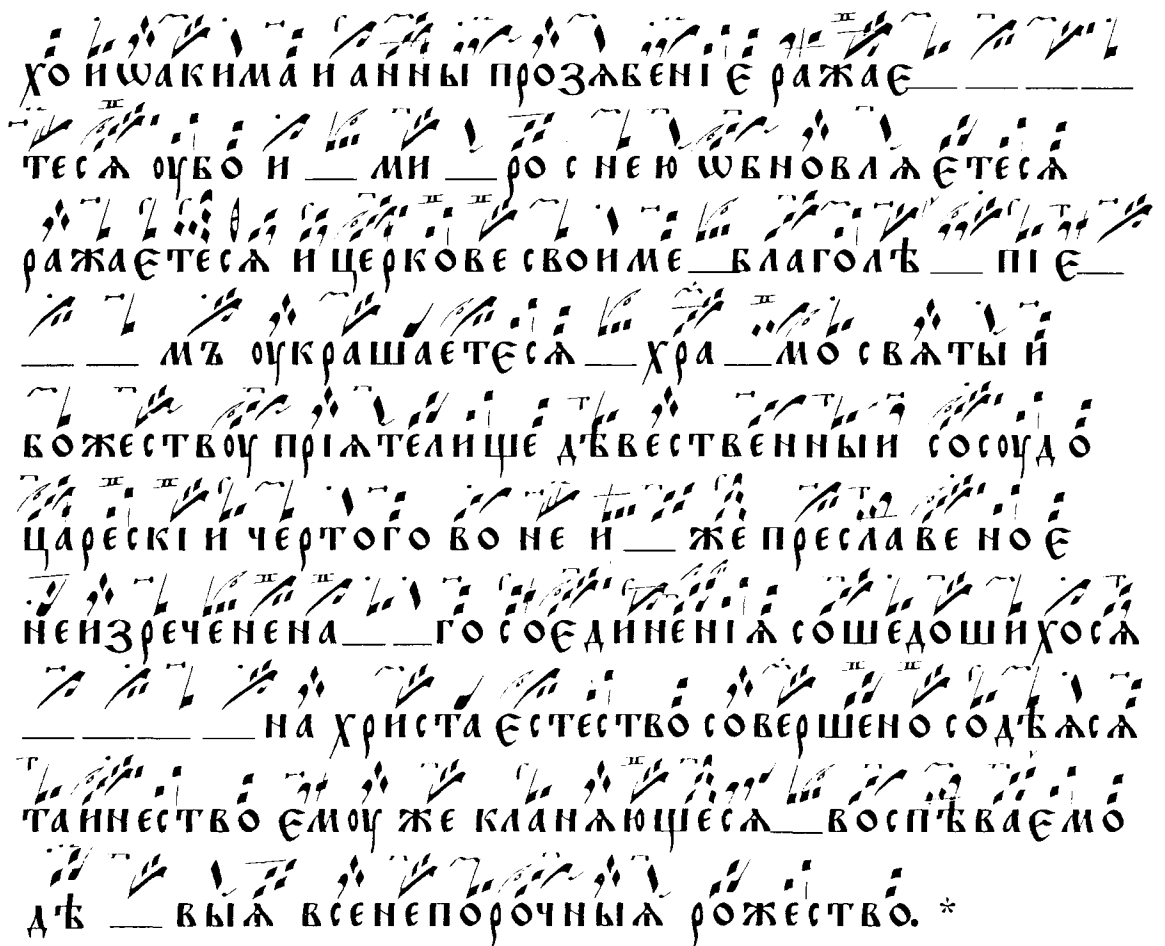 хо и ѡакима и анны прозѧбенї є ражає__ __ __ __
тесѧ оубо и __ ми __ ро с нею ѡбновлѧєтесѧ
ражаєтесѧ и церкове своиме__благолѣ __ пї є__
__ __ мъ оукрашаетєсѧ__хра __мо свѧтыи
божествоу прїѧтелище дѣвественныи сосоудо
царескїи чертого во не и __ же преславеноє
неизреченена__ __го соєдиненїѧ сошедошихосѧ
__ __ __ __на христа єстество совершено содѣѧсѧ
таинество ємоу же кланѧющесѧ__воспѣваємо
дѣ __ выѧ всенепорочныѧ рожество. *